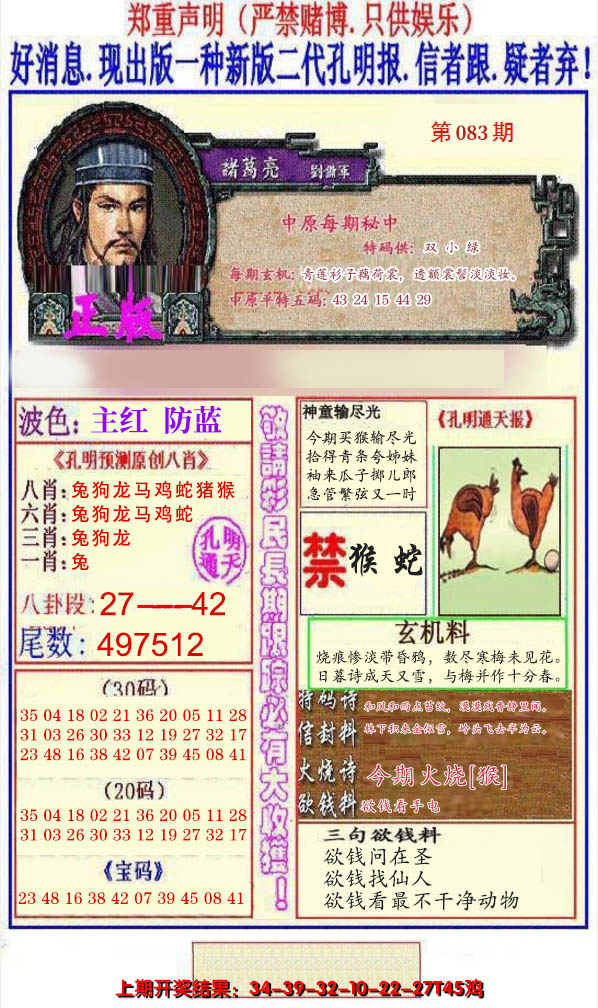 郑重声明（严禁赌博.只供娱乐）
好消息.现出版一种新版二代孔明报.信者跟.疑者弃！
第083期
諸葛亮 劉備軍
中原每期秘中
特码供：双 小 绿
每期玄机：青莲衫子藕荷裳，透额裳髻淡淡妆。
中原平特五码：43 24 15 44 29
正版
波色：主红 防蓝
《孔明预测原创八肖》
八肖：兔狗龙马鸡蛇猪猴
六肖：兔狗龙马鸡蛇
三肖：兔狗龙
一肖：兔
孔明通天
八卦段：27——42
尾数：497512
（30码）
35 04 18 02 21 36 20 05 11 28
31 03 26 30 33 12 19 27 32 17
23 48 16 38 42 07 39 45 08 41
（20码）
35 04 18 02 21 36 20 05 11 28
31 03 26 30 33 12 19 27 32 17
《宝码》
23 48 16 38 42 07 39 45 08 41
敬請彩民長期跟踪必有大收獲！
神童输尽光
今期买猴输尽光
拾得青条夸姊妹
袖来瓜子掷儿郎
急管繁弦又一时
《孔明通天报》
禁 猴 蛇
玄机料
烧痕惨淡带昏鸦，数尽寒梅未见花。
日暮诗成天又雪，与梅并作十分春。
特码诗 和风和雨点苔纹，漠漠残香静里闻。
信封料 林下积来全似雪，岭头飞去半为云。
火烧诗 今期火烧[猴]
欲钱料 欲钱看手电
三句欲钱料
欲钱问在圣
欲钱找仙人
欲钱看最不干净动物
上期开奖结果：34-39-32-10-22-27T45鸡